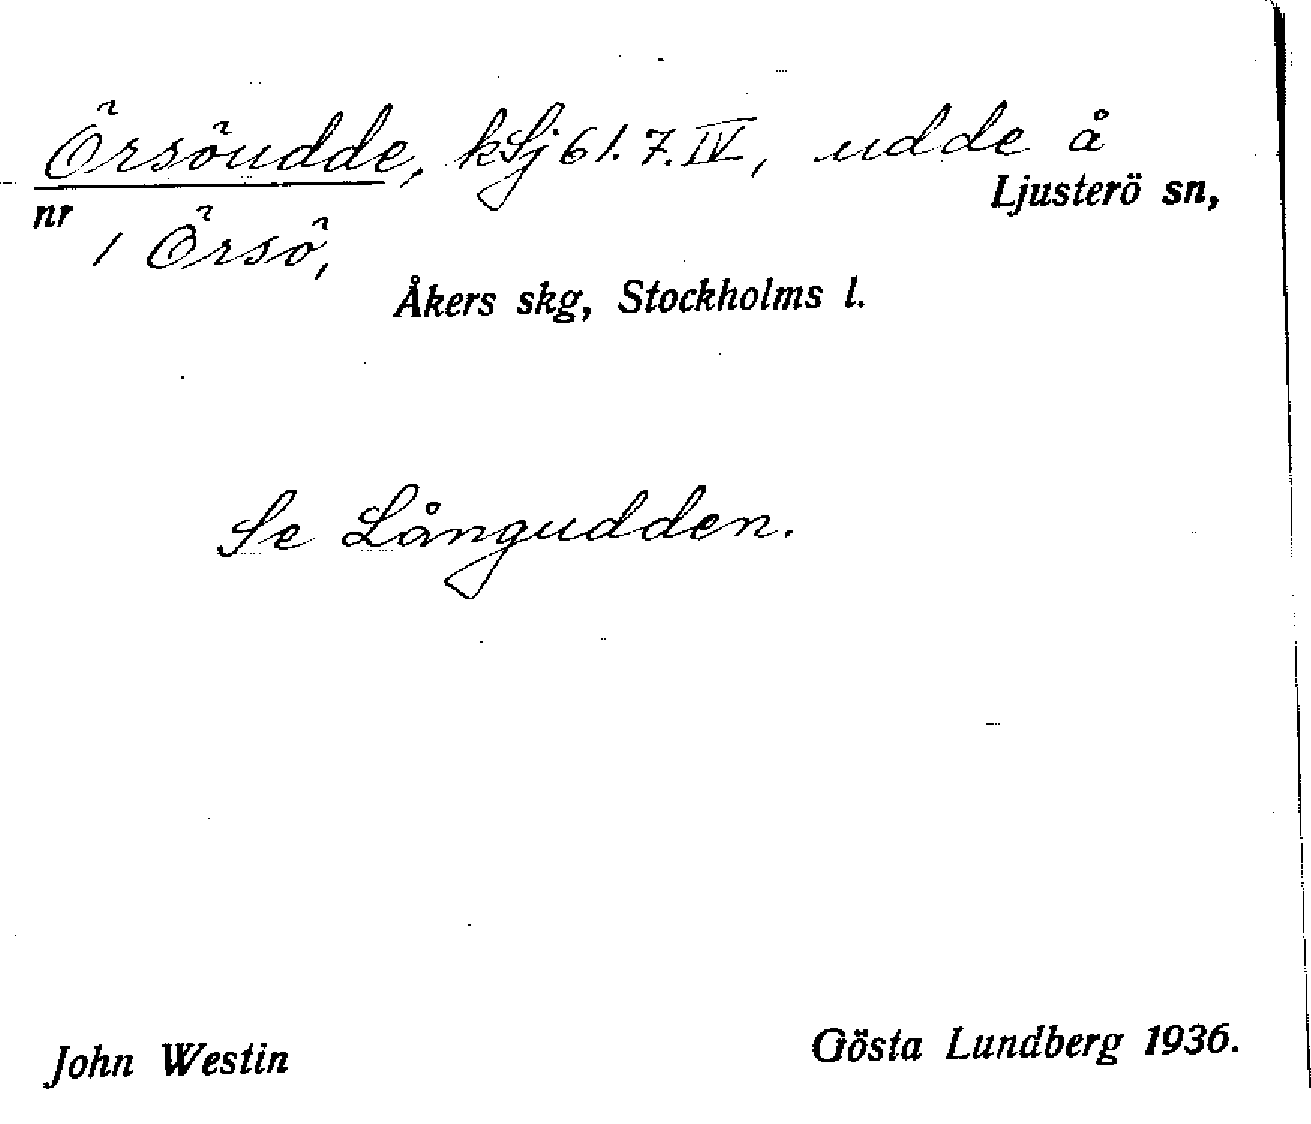 Örsöudde, kLj 61. 7. IV, udde å
Ljusterö sn,
nr 1 Örsö,
Åkers skg, Stockholms l.
Se Långudden.
John Westin
Gösta Lundberg 1936.